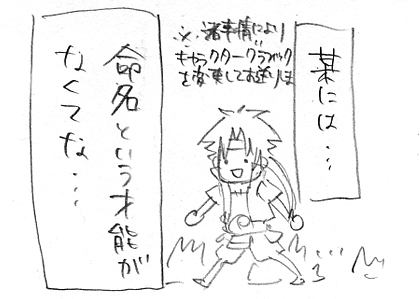 某には…
※諸事情により
キャラクターグラフィック
を変更してお送りしま
命名という才能が
なくてな…